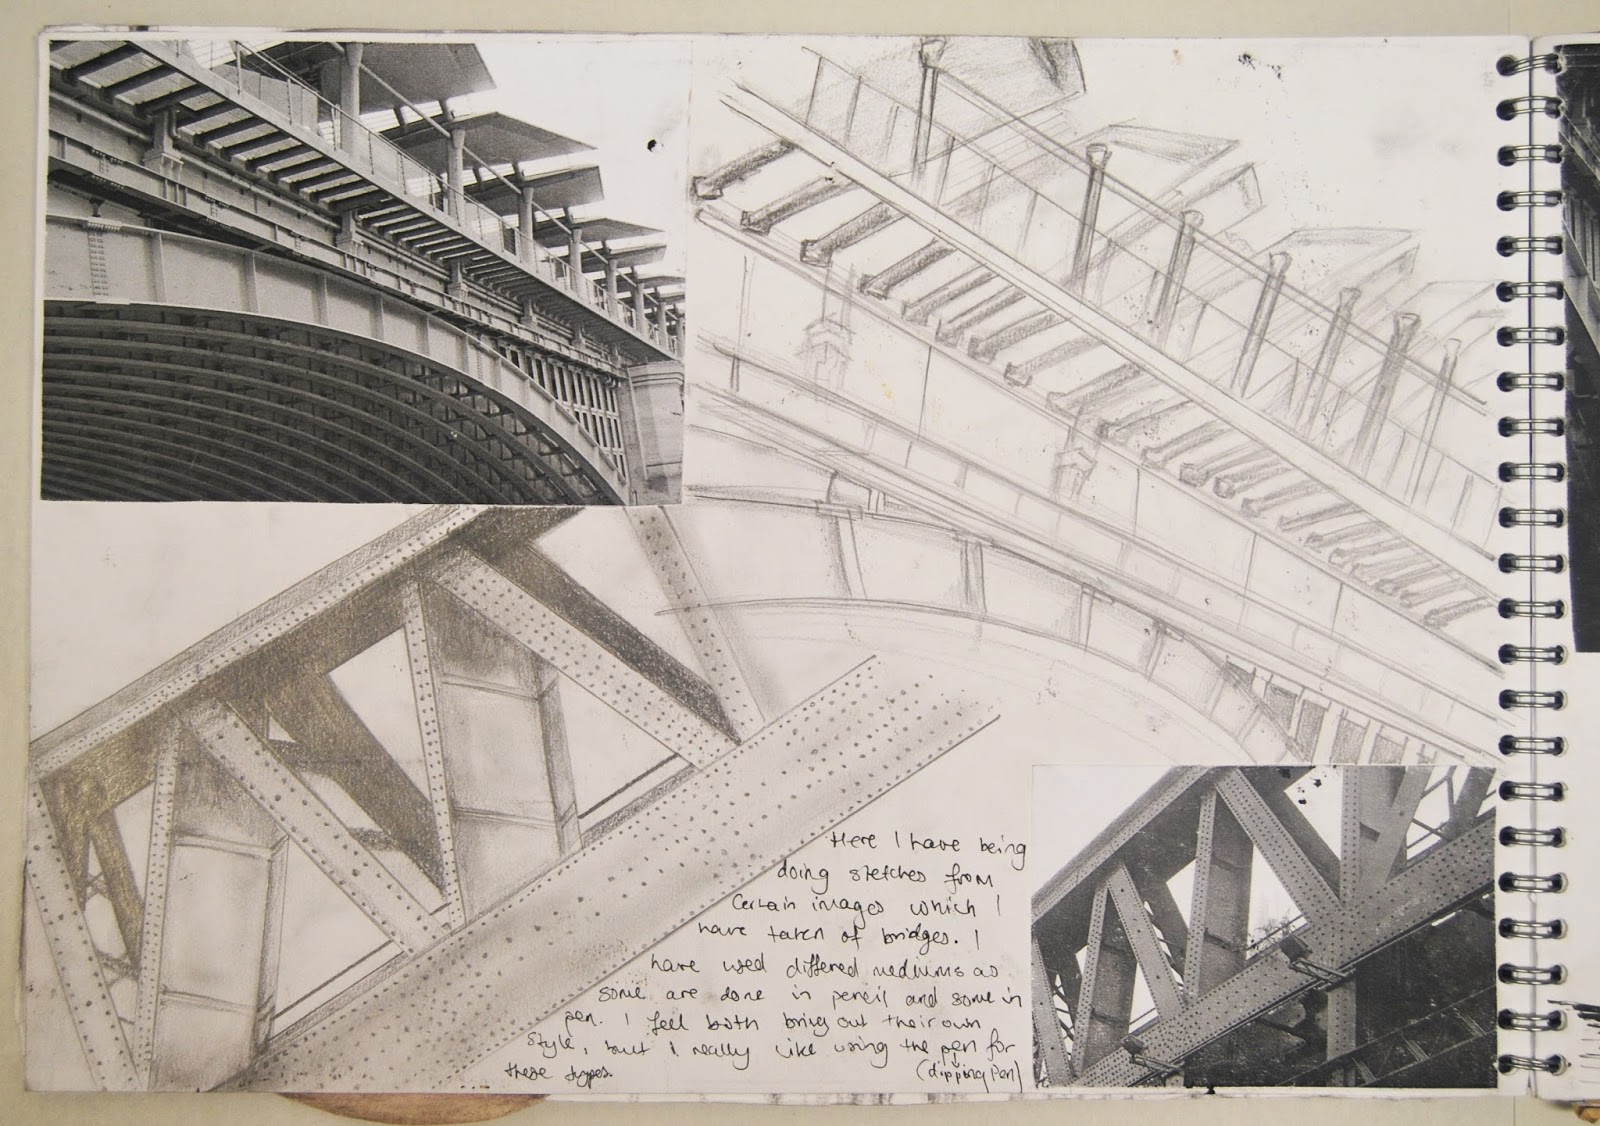 Here I have being
doing sketches from
Certain images which I
have taken of bridges. I
have used differed mediums as
some are done in pencil and some in
pen. I feel both bring out their own
style, but I really like using the pen for
these types. (dipping pen)